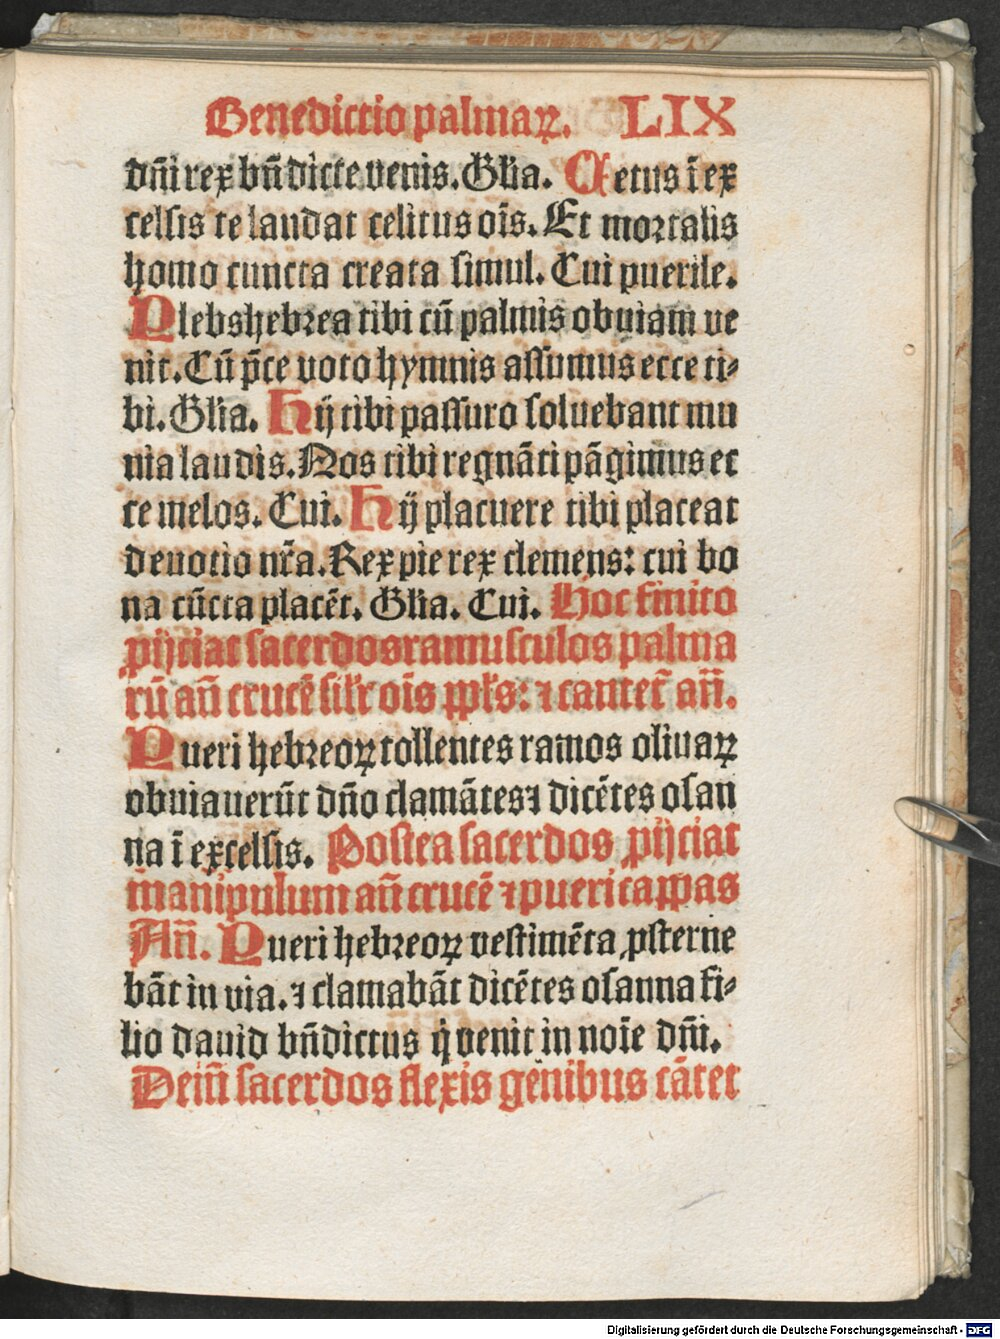 Benedictio palmaꝝ. LIX
dn̄i rex bn̄dicte venis. Gl̄ia. Cetus ī ex
celsis te laudat celitus oīs. Et moꝛtalis
homo cuncta creata simul. Cui puerile.
Plebs hebꝛea tibi cū palmis obuiam ve
nit. Cū p̄ce voto hymnis assumus ecce ti⸗
bi. Gl̄ia. Hij tibi passuro soluebant mu
nia laudis. Nos tibi regnāti pāgimus ec
ce melos. Cui. Hij placuere tibi placeat
deuotio nr̄a. Rex pie rex clemens: cui bo
na cūcta placēt. Gl̄ia. Cui. Hoc finito
ꝓijciat sacerdos ramusculos palma
rū an̄ crucē sil̄r oīs ppl̄s: ⁊ cantet̄ an̄.
Pueri hebꝛeoꝝ tollentes ramos oliuaꝝ
obuiauerūt dn̄o clamātes ⁊ dicētes osan
na ī excelsis. Postea sacerdos ꝓijciat
manipulum an̄ crucē ⁊ pueri cappas
An̄. Pueri hebꝛeoꝝ vestimēta ꝓsterne
bāt in via. ⁊ clamabāt dicētes osanna fi⸗
lio dauid bn̄dictus q̇ venit in noīe dn̄i.
Dein̄ sacerdos flexis genibus cātet
Digitalisierung gefördert durch die Deutsche Forschungsgemeinschaft - DFG